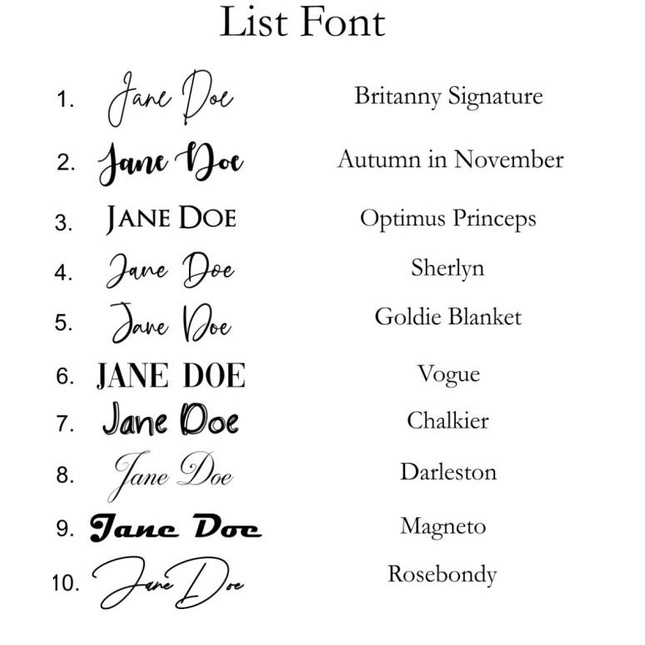 List Font
1. Jane Doe Britanny Signature
2. Jane Doe Autumn in November
3. JANE DOE Optimus Princeps
4. Jane Doe Sherlyn
5. Jane Doe Goldie Blanket
6. JANE DOE Vogue
7. Jane Doe Chalkier
8. Jane Doe Darleston
9. Jane Doe Magneto
10. Jane Doe Rosebondy